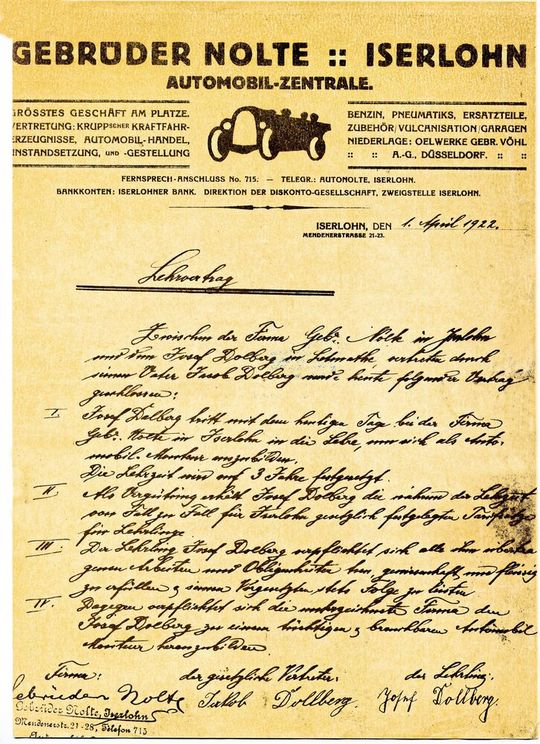 GEBRÜDER NOLTE :: ISERLOHN
AUTOMOBIL-ZENTRALE.
GRÖSSTES GESCHÄFT AM PLATZE.
VERTRETUNG: KRUPPSCHER KRAFTFAHR-
ERZEUGNISSE, AUTOMOBIL-HANDEL,
INSTANDSETZUNG, UND -GESTELLUNG
BENZIN, PNEUMATIKS, ERSATZTEILE,
ZUBEHÖR/VULCANISATION/GARAGEN
NIEDERLAGE: OELWERKE GEBR. VÖHL
:: :: A.-G., DÜSSELDORF. :: ::
FERNSPRECH-ANSCHLUSS No. 715. — TELEGR.: AUTONOLTE, ISERLOHN.
BANKKONTEN: ISERLOHNER BANK. DIREKTION DER DISKONTO-GESELLSCHAFT, ZWEIGSTELLE ISERLOHN.
ISERLOHN, DEN 1. April 1922.
MENDENERSTRASSE 21-23.
Lehrvertrag
Zwischen der Firma Gebr. Nolte in Iserlohn
und dem Josef Dolberg in Letmathe vertreten durch
seinen Vater Jacob Dolberg wurde heute folgender Vertrag
geschlossen:
I. Josef Dolberg tritt mit dem heutigen Tage bei der Firma
Gebr. Nolte in Iserlohn in die Lehre, um sich als Auto-
mobil-Monteur auszubilden.
Die Lehrzeit wird auf 3 Jahre festgesetzt.
II Als Vergütung erhält Josef Dolberg die während der Lehrzeit
von Fall zu Fall für Iserlohn gesetzlich festgelegten Tarifsätze
für Lehrlinge.
III. Der Lehrling Josef Dolberg verpflichtet sich alle ihm übertra-
genen Arbeiten und Obliegenheiten gewissenhaft und fleissig
zu erfüllen & seinen Vorgesetzten stets Folge zu leisten
IV. Dagegen verpflichtet sich die unterzeichnete Firma den
Josef Dolberg zu einem tüchtigen & brauchbaren Automobil
Monteur heranzubilden
Firma: der gesetzliche Vertreter: der Lehrling:
Gebrüder Nolte Jakob Dollberg. Josef Dollberg.
Gebrüder Nolte, Iserlohn
Mendenerstr. 21-23, Telefon 715